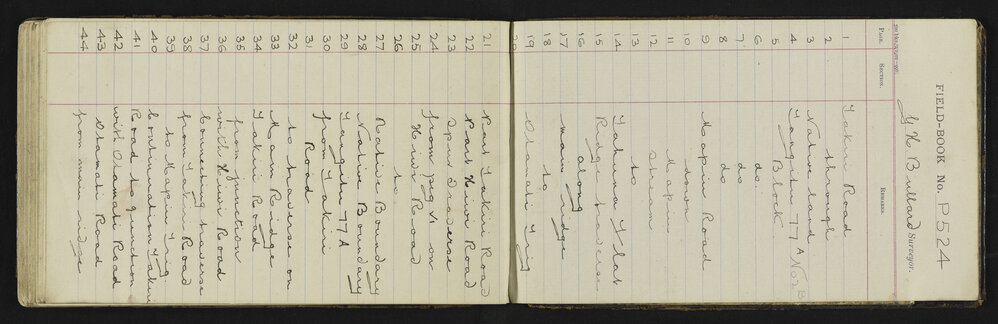 FIELD-BOOK No. P524
G H Bullard Surveyor.
Page. Section. Remarks.
1 Takiri Road
2 through
3 Native land
4 Tangitu 77A No2B
5 Block
6 do
7 do
8 do
9 Mapiu Road
10 down
11 Mapiu
12 Stream
13 to
14 Tahuna Flat
15 Ridge traverse
16 along
17 main ridge
18 to
19 Otamati Trig
20
21 Part Takiri Road
22 Part Hiwi Road
23 Spur Traverse
24 from peg VI on
25 Hiwi Road
26 to
27 Native Boundary
28 Native Boundary
29 Tangitu 77A
30 from Takiri
31 Road
32 to traverse on
33 Main Ridge
34 Takiri Road
35 from junction
36 with Hiwi Road
37 Connecting traverse
38 from Takiri Road
39 to Mapiu Trig
40 Continuation Takiri
41 Road to junction
42 with Otamati Road
43 Otamati Road
44 from main ridge